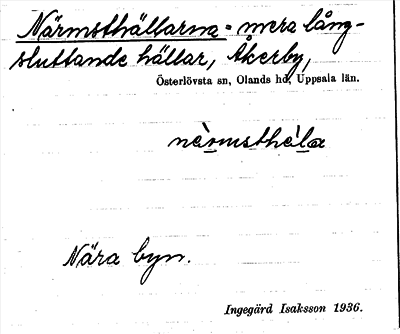 Närmsthällarna - mera lång-
sluttande hällar, Åkerby,
Österlövsta sn, Olands hd, Uppsala län.
nèrmsthèla
Nära byn.
Ingegärd Isaksson 1936.